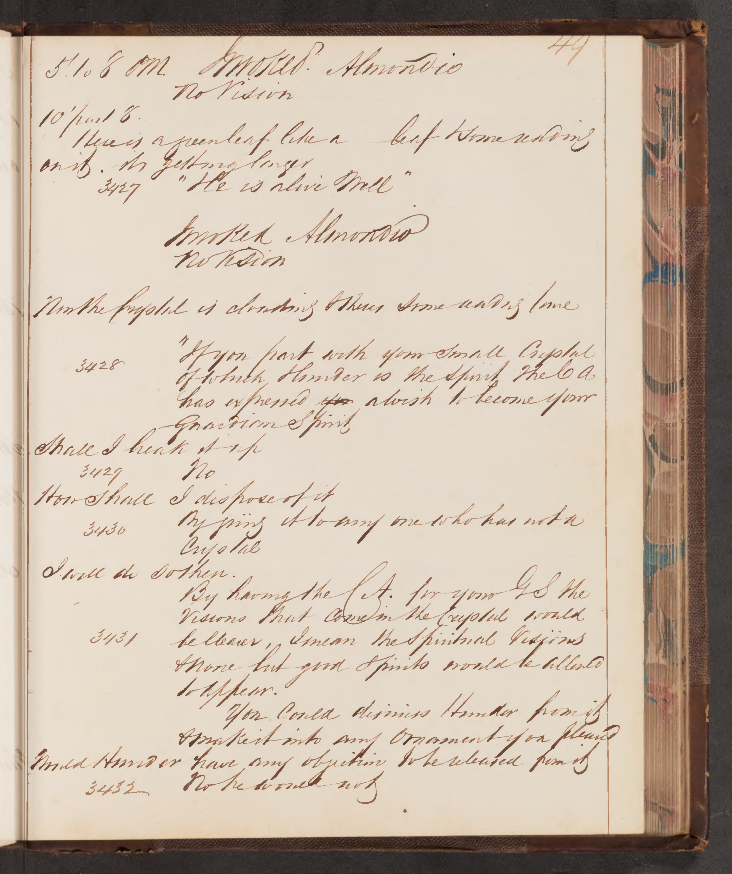 49
5' to 8 PM. Invoked. Almondio
No Vision
10' past 8.
Here is a green leaf like a leaf & some reading
on it. its getting larger
3427 "He is alive Well"
Invoked Almondio
No Vision
Now the Crystal is clouding & theres some reading come
3428 "If you part with your Small Crystal
of which Hunder is the Spirit The C A
has expressed a wish to become your
Guardian Spirit
Shall I break it up
3429 No
How Shall I dispose of it
3430 By giving it to any one who has not a
Crystal
I will do so then.
By having the C A. for your G S the
Visions that Come in the Crystal would
3431 be clearer, I mean the Spiritual Visions
& none but good Spirits would be allowed
to appear.
You Could dismiss Hunder from it
& make it into any Ornament you pleased
Would Hunder have any objection to be released from it
3432 No he would not